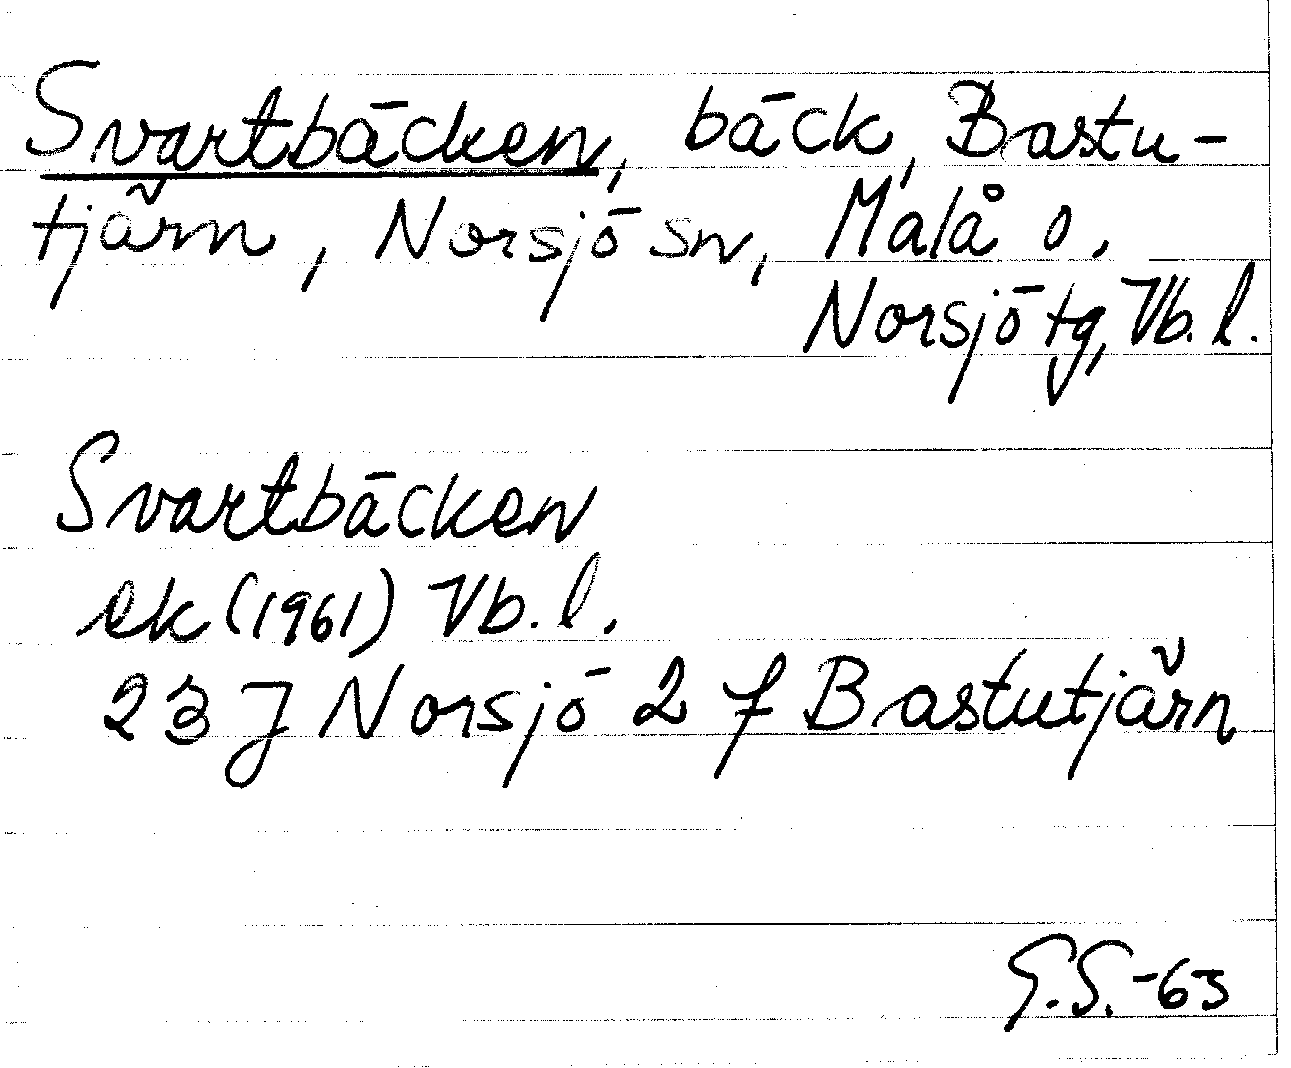 Svartbäcken, bäck, Bastu-
tjärn, Norsjö sn, Malå o.
Norsjö tg, Vb. l.
Svartbäcken
ek (1961) Vb. l.
23 J Norsjö 2 f Bastutjärn
G.S.-63